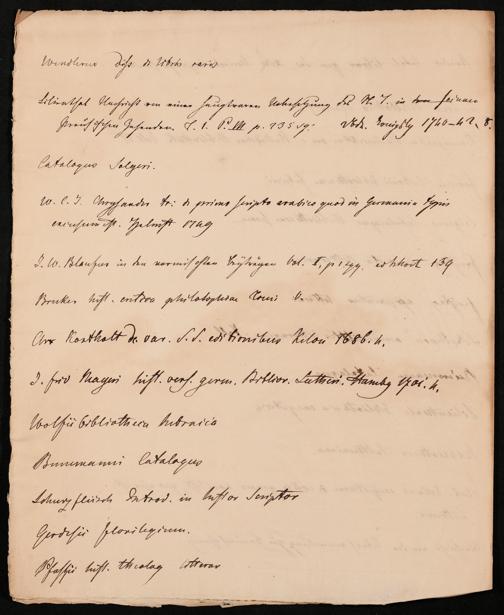 Wendlerus diss. de libris raris
Lilienthal Nachricht von einer Übersetzung des N. T. in
Preussischen Zehenden. T. 1. P. III p. 235 sq. Königsbg 1740–42. 8.
Catalogus Solgeri.
W. C. J. Chrysander de primo scripto arabico quod in Germania typis
excusum est. Helmst 1749
J. W. Blaufus in den vermischten Beyträgen Vol. I. p 159
Bruker hist. critica philosophiae Tomi V.
Chr Kortholt de var. S. S. editionibus Kiloni 1686. 4.
J. frid Mayeri hist. vers. germ. Biblior. Lutheri. Hambg 1701. 4.
Wolfii bibliotheca hebraica
Bunemanni Catalogus
Schurzfleisch Introd. in Scriptor
Gerdesii florilegium.
Pfaffii hist. theolog litterar